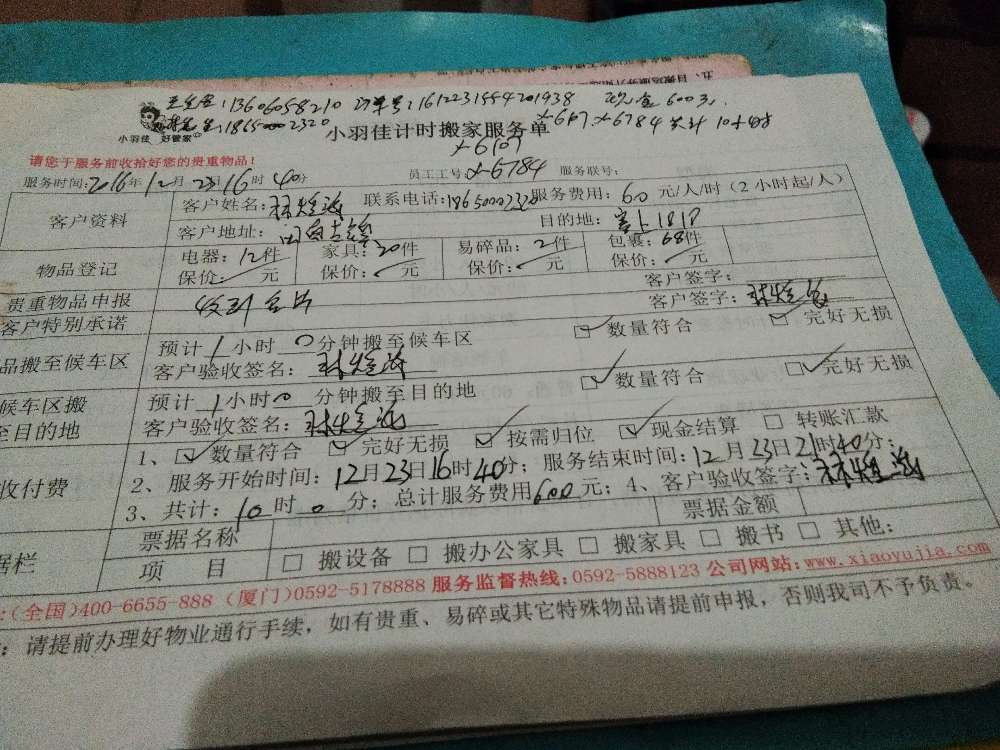 13606058210 订单号:1612231554201938 现金600元
18650002320 X6107.X6784 共计10小时
小羽佳 好管家 小羽佳计时搬家服务单
X6107
请您于服务前收拾好您的贵重物品!
服务时间:2016年12月23日16时40分 员工工号:X-6784 服务联号:
客户资料 客户姓名: 联系电话:18650002320 服务费用:60元/人/时(2小时起/人)
客户地址: 目的地:
物品登记 电器:12件 家具:20件 易碎品:2件 包裹:68件
保价: 元 保价: 元 保价: 元 保价: 元
贵重物品申报 客户签字:
客户特别承诺 客户签字:
品搬至候车区 预计1小时0分钟搬至候车区 数量符合 完好无损
客户验收签名:
候车区搬 预计1小时0分钟搬至目的地 数量符合 完好无损
至目的地 客户验收签名:
收付费 1、数量符合 完好无损 按需归位 现金结算 转账汇款
2、服务开始时间:12月23日16时40分;服务结束时间:12月23日21时40分;
3、共计:10时0分;总计服务费用600元;4、客户验收签字:
据栏 票据名称 票据金额
项 目 搬设备 搬办公家具 搬家具 搬书 其他:
:(全国)400-6655-888 (厦门)0592-5178888 服务监督热线:0592-5888123 公司网站:www.xiaoyujia.com
:请提前办理好物业通行手续,如有贵重、易碎或其它特殊物品请提前申报,否则我司不予负责。